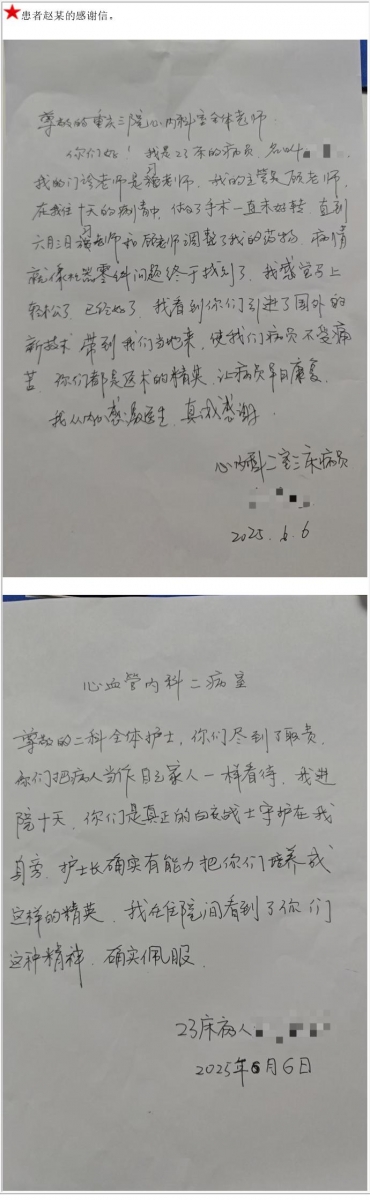 ★患者赵某的感谢信。
尊敬的重庆三院心内科室全体老师:
你们好!我是23床的病员,名叫
我的门诊老师是 老师,我的主管是顾老师,
在我住十天的病情中,做了手术一直未好转,直到
六月三日 老师和顾老师调整了我的药物,病情
就像机器零件问题终于找到了,我感觉马上
轻松了,已经好了,我看到你们引进了国外的
新技术,带到我们当地来,使我们病员不受痛
苦,你们都是医术的精英,让病员早日康复。
我从内心感激医生,真诚感谢,
心内科二室 床病员
2025.6.6
心血管内科二病室
尊敬的二科全体护士,你们尽到了职责,
你们把病人当作自己家人一样看待,我进
院十天,你们是真正的白衣战士守护在我
身旁,护士长确实有能力把你们培养成
这样的精英,我在住院间看到了你们
这种精神,确实佩服.
23床病人
2025年6月6日